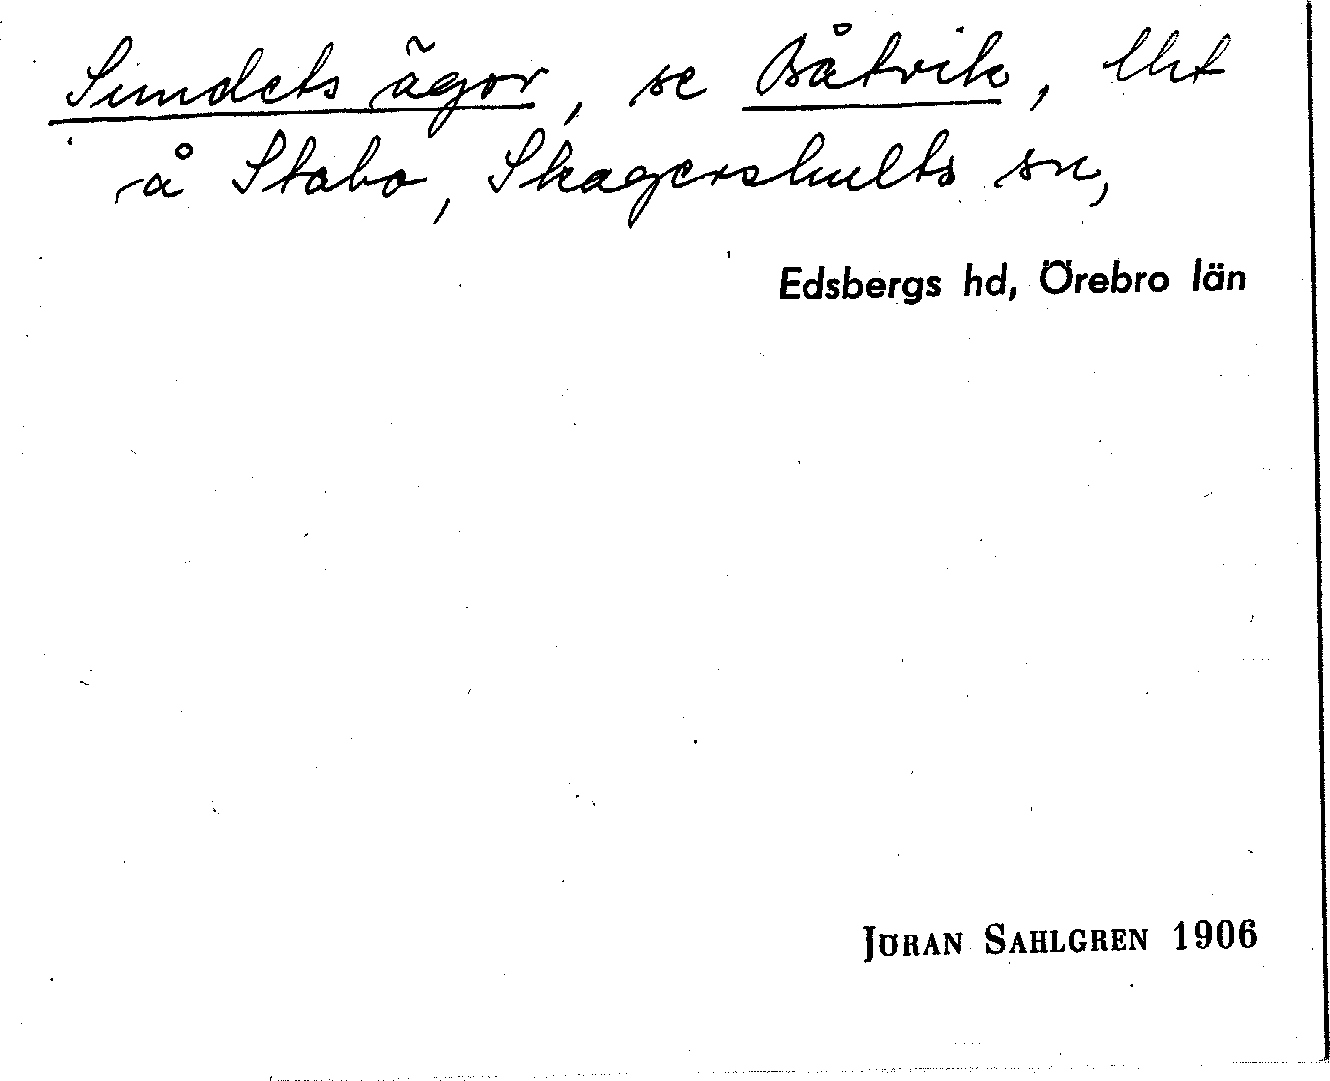 Sundets ägor, se Båtvik, lht
å Stabo, Skagershults sn,
Edsbergs hd, Örebro län
JÖRAN SAHLGREN 1906